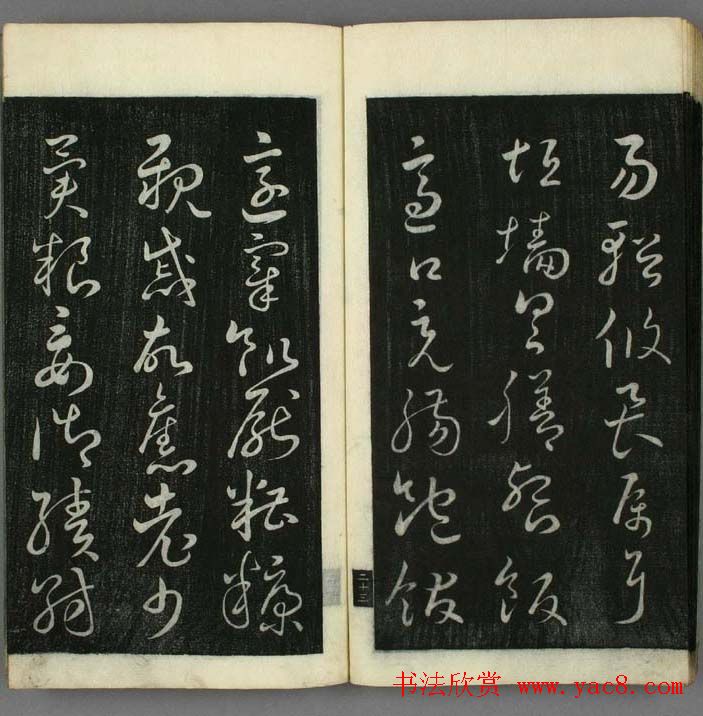 易輶攸畏屬耳
垣墻具膳飡飯
適口充腸飽飫
二十三
烹宰飢厭糟糠
親戚故舊老少
異粮妾御績紡
书法欣赏 www.yac8.com